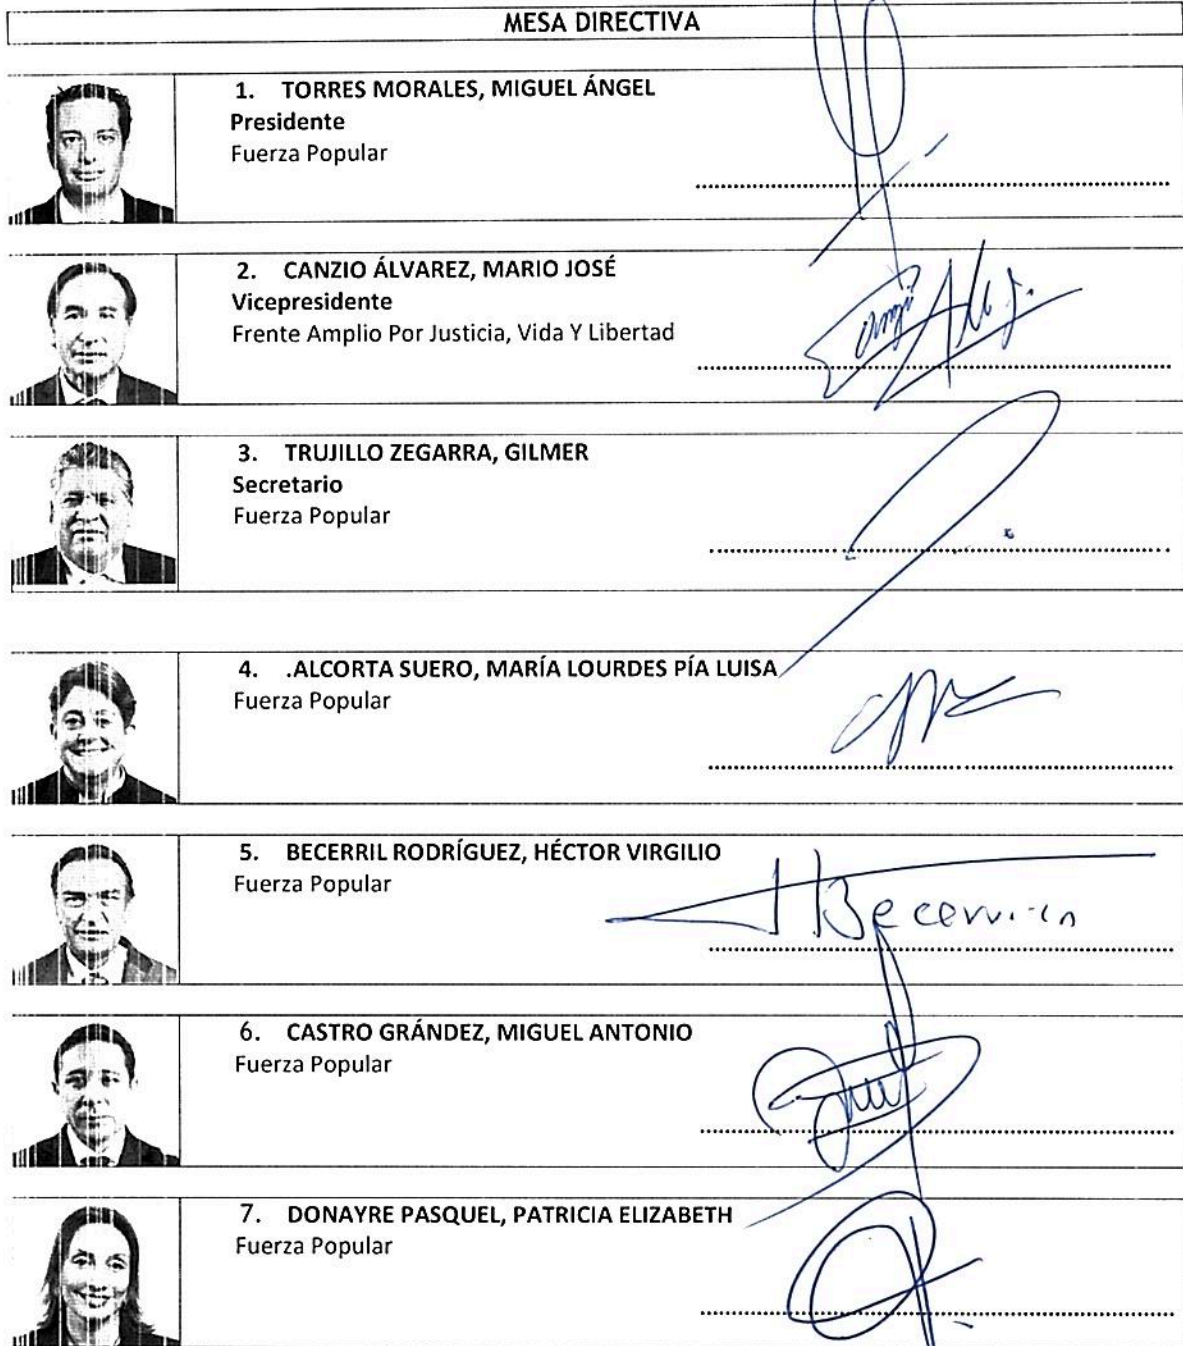 MESA DIRECTIVA
1. TORRES MORALES, MIGUEL ÁNGEL
Presidente
Fuerza Popular
2. CANZIO ÁLVAREZ, MARIO JOSÉ
Vicepresidente
Frente Amplio Por Justicia, Vida Y Libertad
3. TRUJILLO ZEGARRA, GILMER
Secretario
Fuerza Popular
4. .ALCORTA SUERO, MARÍA LOURDES PÍA LUISA
Fuerza Popular
5. BECERRIL RODRÍGUEZ, HÉCTOR VIRGILIO
Fuerza Popular
6. CASTRO GRÁNDEZ, MIGUEL ANTONIO
Fuerza Popular
7. DONAYRE PASQUEL, PATRICIA ELIZABETH
Fuerza Popular